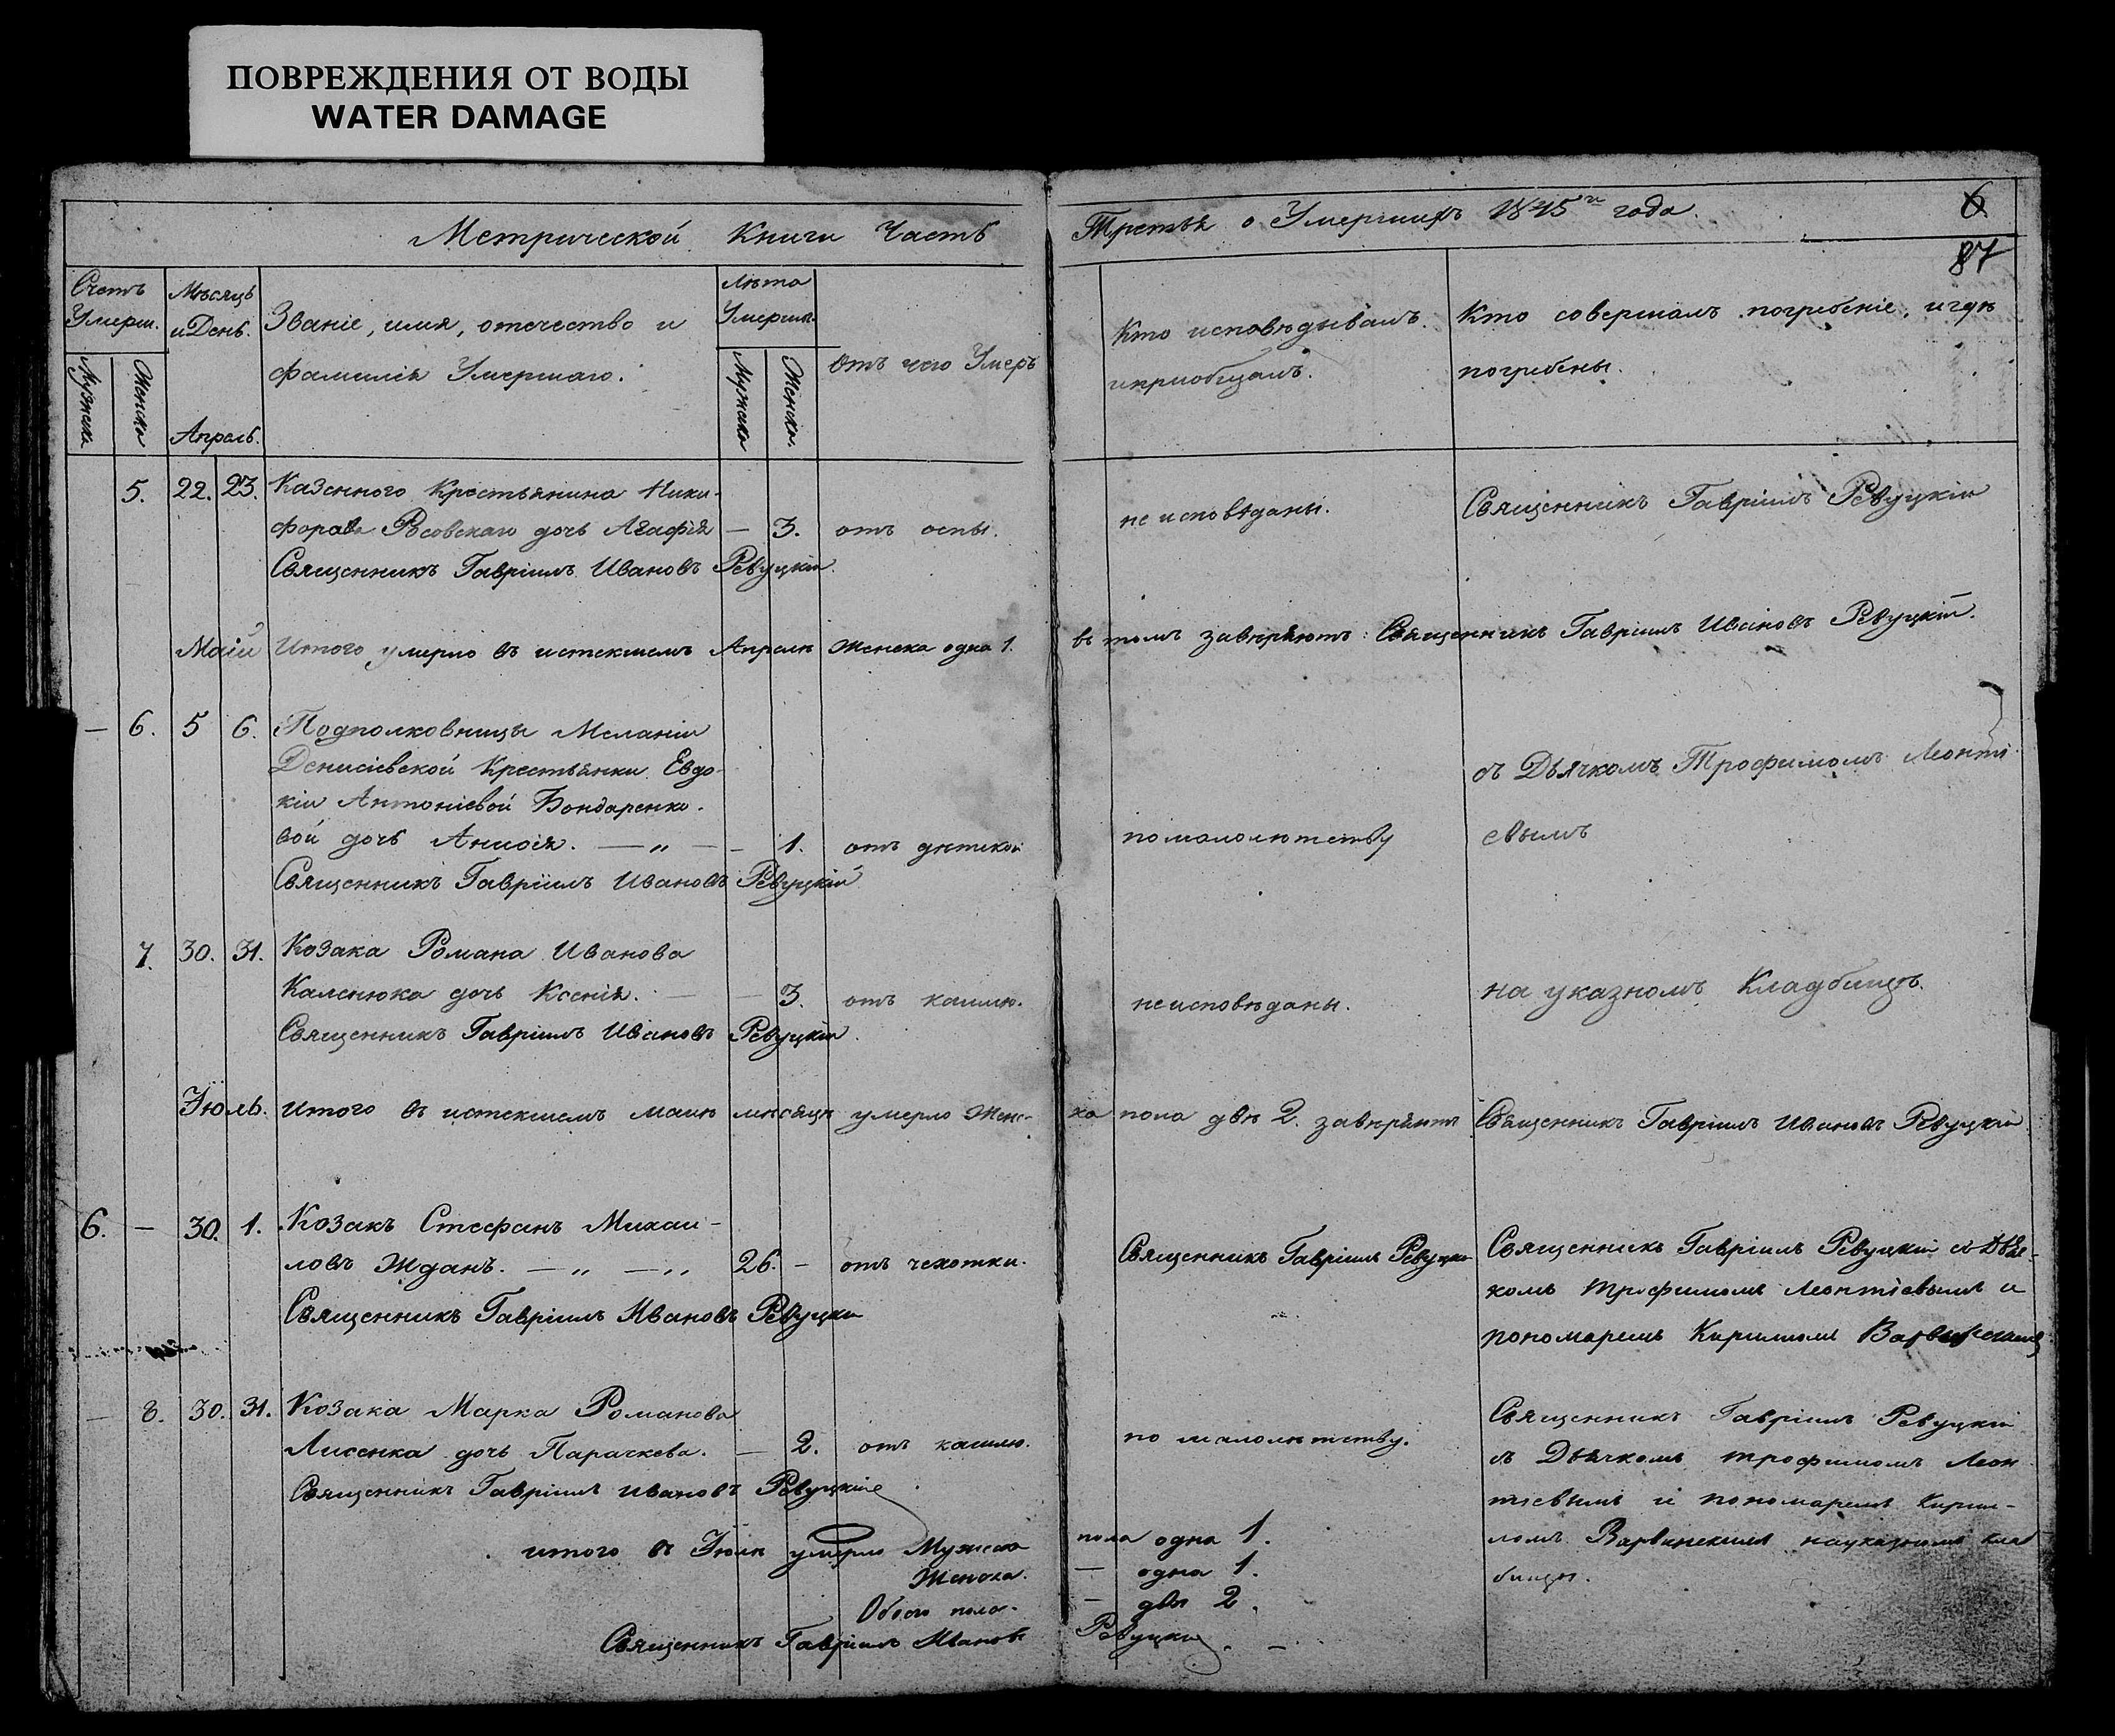 ПОВРЕЖДЕНИЯ ОТ ВОДЫ
WATER DAMAGE
Метрической Книги Часть
Третья о Умершихъ 1845го года.
6
87
Счетъ Умерш.
Мужска
Женска
Мѣсяцъ и День.
Апрель.
Званіе, имя, отечество и
фамилія Умершаго.
Лѣта Умерш.
Мужска
Женска.
Отъ чего Умеръ
Кто исповѣдывалъ
и приобщалъ.
Кто совершалъ погребеніе, и гдѣ
погребены.
5. 22. 23. Казенного Крестьянина Ники-
фора Рсовскаго дочь Агафія — 3. отъ оспы.
Священникъ Гавріилъ Ивановъ Ревуцкій
не исповѣданы.
Священникъ Гавріилъ Ревуцкій
Маій Итого умерло въ истекшемъ Апрелѣ женска одна 1.
въ томъ завѣряютъ: Священникъ Гавріилъ Ивановъ Ревуцкій.
— 6. 5 6. Подполковницы Меланіи
Денисіевской Крестьянки Евдо-
кіи Антоніевой Бондаренко-
вой дочь Анисія. — „ — — 1. отъ дѣтской
Священникъ Гавріилъ Ивановъ Ревуцкій
по малолѣтству
съ Дьячкомъ Трофимомъ Леонті
евымъ
7. 30. 31. Козака Романа Иванова
Каленюка дочь Ксенія. — — 3. отъ кашлю.
Священникъ Гавріилъ Ивановъ Ревуцкій.
не исповѣданы.
на указномъ Кладбищѣ.
Іюль. Итого въ истекшемъ маіи мѣсяцѣ умерло Женс-
ка пола двѣ 2. завѣряютъ Священникъ Гавріилъ Ивановъ Ревуцкій
6. — 30. 1. Козакъ Стефанъ Михаи-
ловъ Жданъ. — „ — „ 26. — отъ чехотки.
Священникъ Гавріилъ Ивановъ Ревуцкій
Священникъ Гавріилъ Ревуцкій
Священникъ Гавріилъ Ревуцкій съ Дьяч-
комъ Трофимомъ Леонтіевымъ и
пономаремъ Кириломъ Варвинскимъ
— 8. 30. 31. Козака Марка Романова
Лисенка дочь Параскева. — 2. отъ кашлю.
Священникъ Гавріилъ Ивановъ Ревуцкій
по малолѣтству.
Священникъ Гавріилъ Ревуцкій
съ Дьячкомъ Трофимомъ Леон
тіевымъ и пономаремъ Кирил-
ломъ Варвинскимъ на указномъ клад
бищѣ.
итого въ Іюлѣ умерло Мужеска
пола одна 1.
Женска.
— одна 1.
Обоего пола.
— двѣ 2.
Священникъ Гавріилъ Ивановъ
Ревуцкій. —